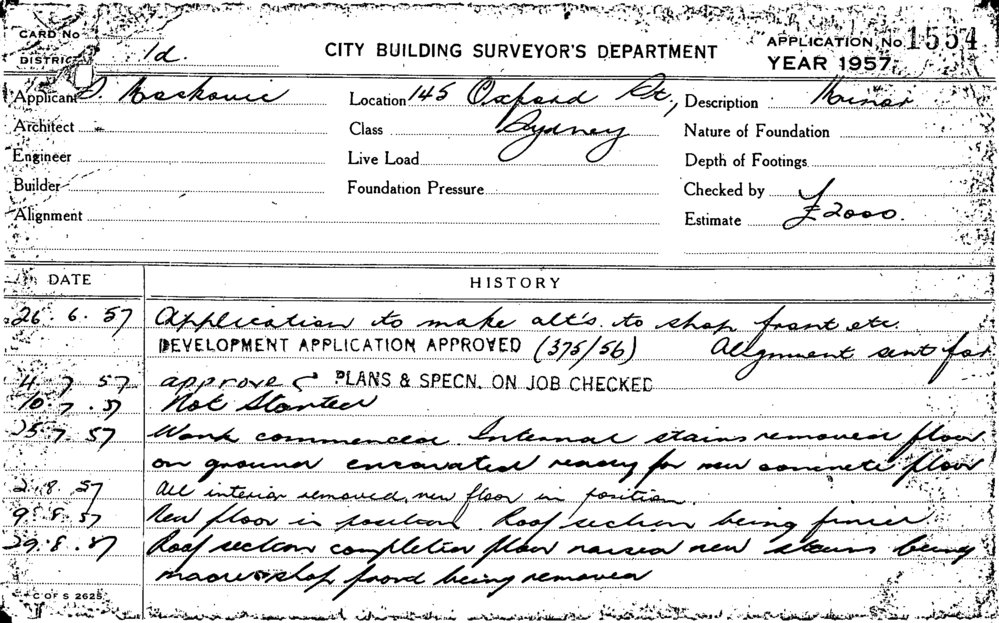 CARD No
CITY BUILDING SURVEYOR'S DEPARTMENT
APPLICATION No 1554
DISTRICT 1d.
YEAR 1957
Applicant
Location 145 Oxford St., Sydney
Description Minor
Architect
Class
Nature of Foundation
Engineer
Live Load
Depth of Footings
Builder
Foundation Pressure
Checked by
Alignment
Estimate £2000.
DATE HISTORY
26. 6. 57 Application to make alt's. to shop front etc.
DEVELOPMENT APPLICATION APPROVED (375/56) Alignment sent for
4 7 57 approved PLANS & SPECN. ON JOB CHECKED
10. 7. 57 Not Started
25. 7. 57 Work commenced. Internal stairs removed floor
on ground excavated ready for new concrete floor
2. 8. 57 All interior removed, new floor in position.
9. 8. 57 New floor in position. Roof section being
29. 8. 57 Roof section completed floor raised new stairs being
made shop front being removed
C OF S 2625